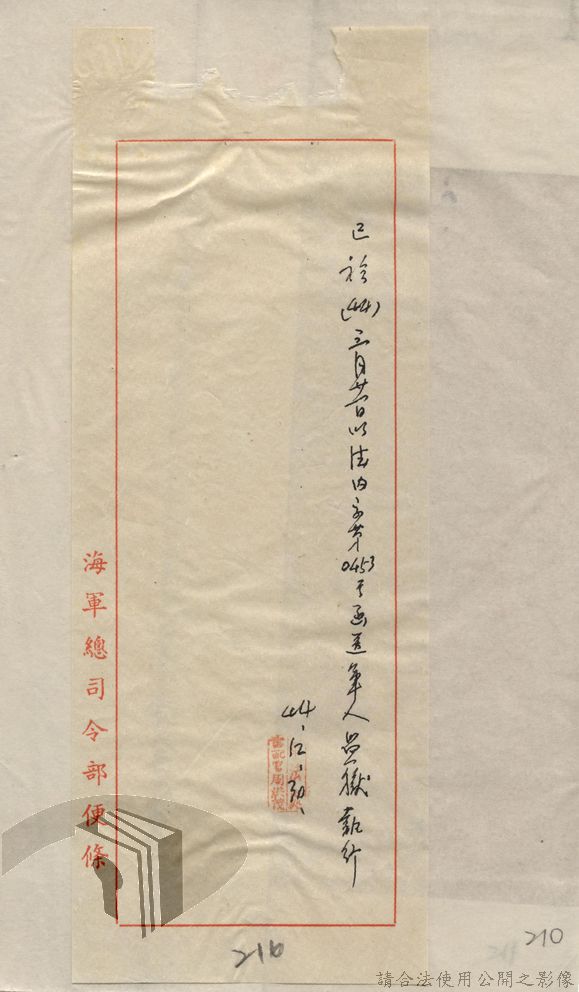 已於(44)三月廿一日以法內字第0453號函送軍人監獄執行
44、12、30、
書記官周
海軍總司令部便條
216
211
210
請合法使用公開之影像